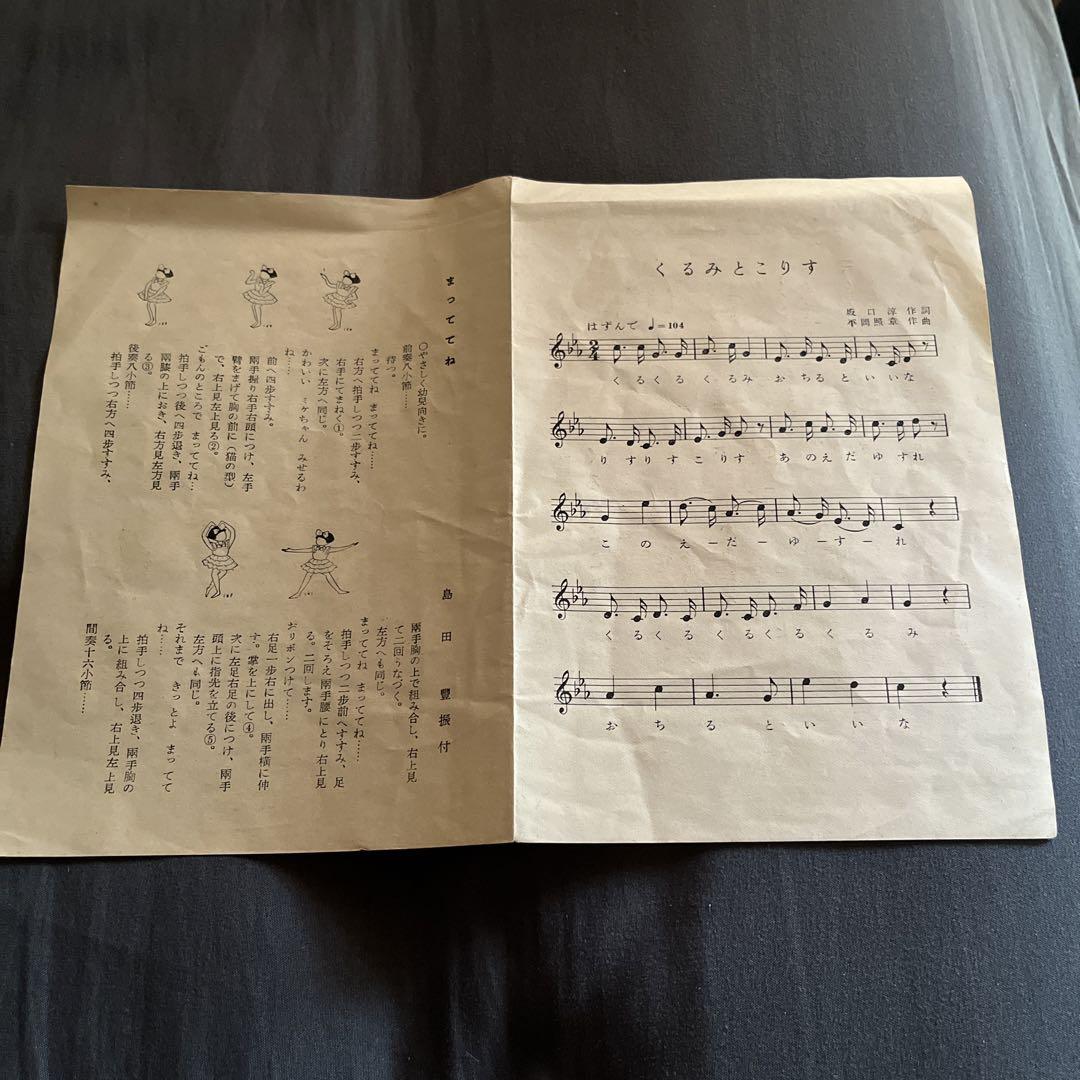 くるみとこりす
坂口淳作詞
平岡照章作曲
はずんで ♩=104
くるくるくるみ おちるといいな
りすりすこりす あのえだゆすれ
このえーだーゆーすーれ
くるくるくるくるくるみ
おちるといいな
まっててね
島田豊振付
○やさしく幼児向きに。
前奏八小節……
待つ。
まっててね まっててね……
右方へ拍手しつつ二歩すすみ、
右手にてまねく①。
次に左方へ同じ。
かわいい ミケちゃん みせるわ
ね……
前へ四歩すすみ。
兩手握り右手右頭につけ、左手
臂をまげて胸の前に(猫の型)
で、右上見左上見る②。
ごもんのところで まっててね…
拍手しつつ後へ四歩退き、兩手
兩膝の上におき、右方見左方見
る③。
後奏八小節……
拍手しつつ右方へ四歩すすみ、
兩手胸の上で組み合し、右上見
て二回うなづく。
左方へも同じ。
まっててね まっててね……
拍手しつつ二歩前へすすみ、足
をそろえ兩手腰にとり右上見
る。二回します。
おリボンつけて……
右足一歩右に出し、兩手横に伸
す。掌を上にして④。
次に左足右足の後につけ、兩手
頭上に指先を立てる⑤。
左方へも同じ。
それまで きっとよ まってて
ね……
拍手しつつ四歩退き、兩手胸の
上に組み合し、右上見左上見
る。
間奏十六小節……